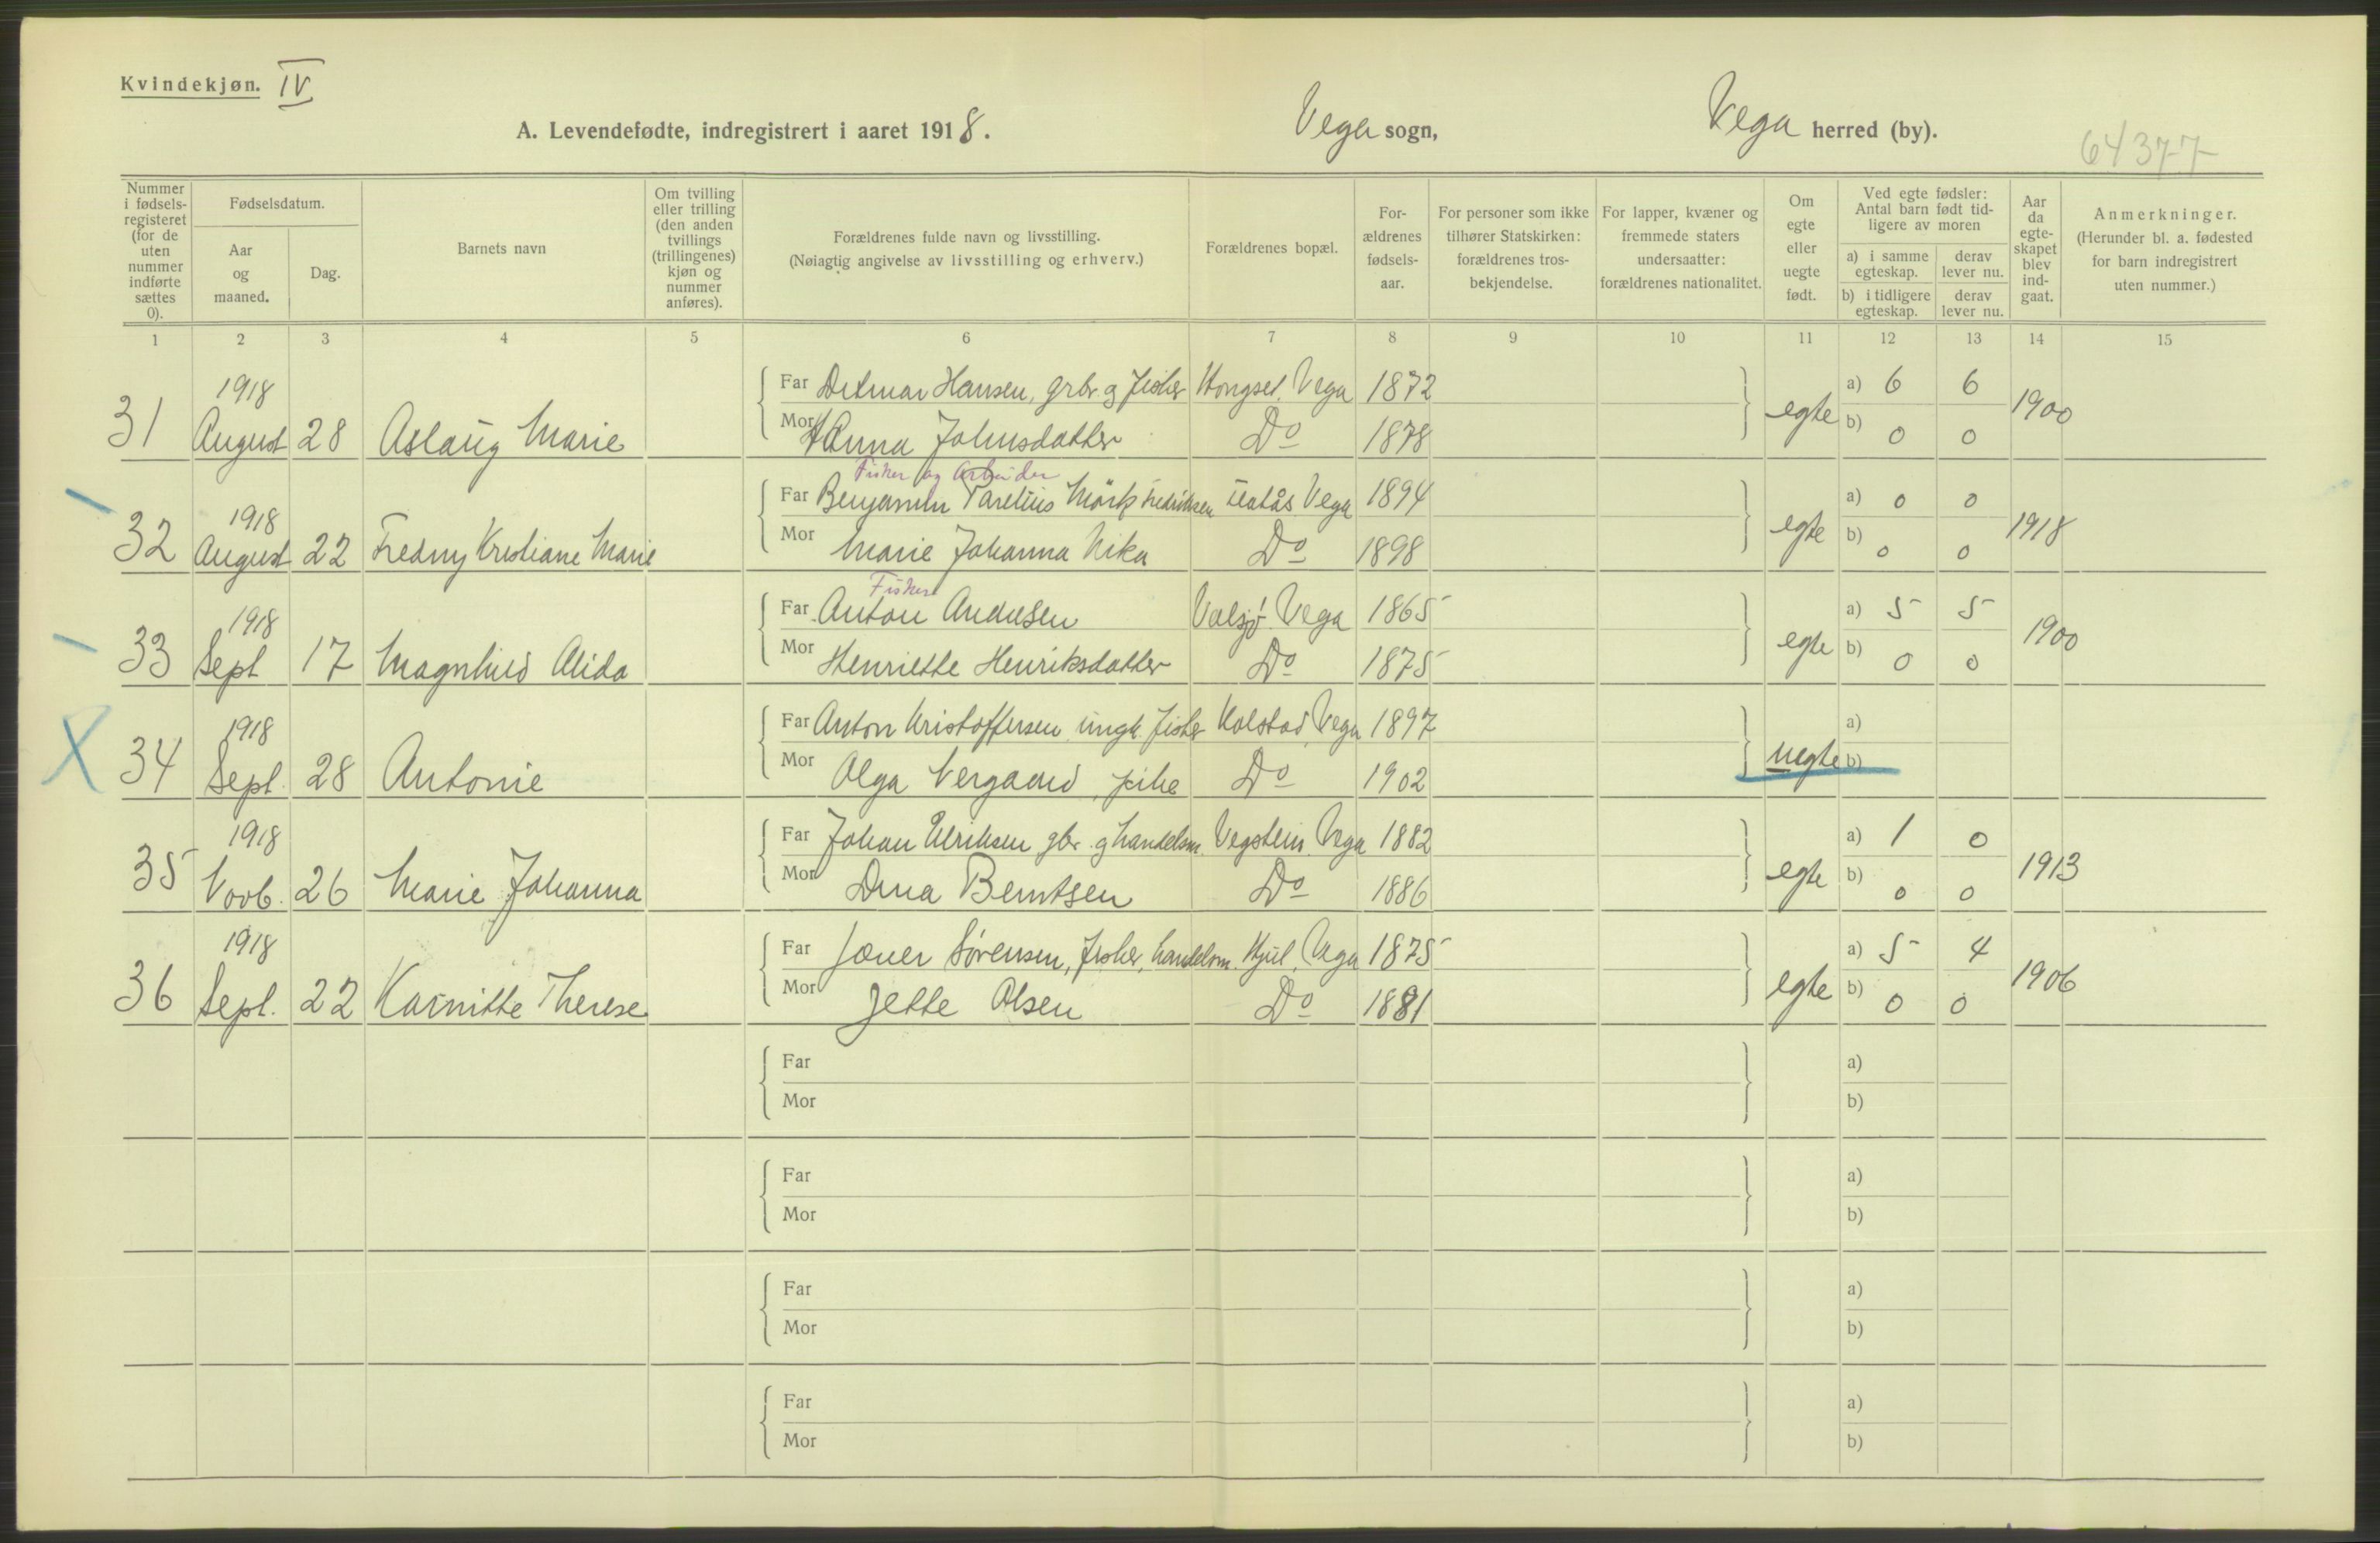 Kvindekjøn. IV
A. Levendefødte, indregistrert i aaret 1918. Vega sogn, Vega herred (by).
64377
Nummer i fødsels-registeret (for de uten nummer indførte sættes 0).
Fødselsdatum.
Aar og maaned.
Dag.
Barnets navn
Om tvilling eller trilling (den anden tvillings (trillingenes) kjøn og nummer anføres).
Forældrenes fulde navn og livsstilling.
(Nøiagtig angivelse av livsstilling og erhverv.)
Forældrenes bopæl.
For-ældrenes fødsels-aar.
For personer som ikke tilhører Statskirken: forældrenes tros-bekjendelse.
For lapper, kvæner og fremmede staters undersaatter: forældrenes nationalitet.
Om egte eller uegte født.
Ved egte fødsler: Antal barn født tid-ligere av moren
a) i samme egteskap. derav lever nu.
b) i tidligere egteskap. derav lever nu.
Aar da egte-skapet blev ind-gaat.
Anmerkninger.
(Herunder bl. a. fødested for barn indregistrert uten nummer.)
1 2 3 4 5 6 7 8 9 10 11 12 13 14 15
1918 Far Detmar Hansen, grbr. g fisker Hongset, Vega 1872 a) 6 6
31 August 28 Aslaug Marie Mor Hanna Johnsdatter Do 1878 egte b) 0 0 1900
Fisker og Arbeider
1918 Far Benjamin Parelius Mörk Fredriksen Vega 1894 a) 0 0
32 August 22 Fredny Kristiane Marie Mor Marie Johanna Nika Do 1898 egte b) 0 0 1918
Fisker
1918 Far Anton Andresen Valsjø. Vega 1865 a) 5 5
33 Sept 17 Magnhild Alida Mor Henriette Henriksdatter Do 1875 egte b) 0 0 1900
1918 Far Anton Kristoffersen ungk. fisker Kolstad, Vega 1897 a)
X 34 Sept. 28 Antonie Mor Olga Vergaard, pike Do 1902 uegte b)
1918 Far Johan Ulriksen gbr. g handelsm. Vegstein, Vega 1882 a) 1 0
35 Novb. 26 Marie Johanna Mor Dina Berntsen Do 1886 egte b) 0 0 1913
1918 Far Joner Sørensen, fisker, handelsm. Kjul, Vega 1875 a) 5 4
36 Sept. 22 Karnitte Therese Mor Jette Olsen Do 1881 egte b) 0 0 1906
Far a)
Mor b)
Far a)
Mor b)
Far a)
Mor b)
Far a)
Mor b)